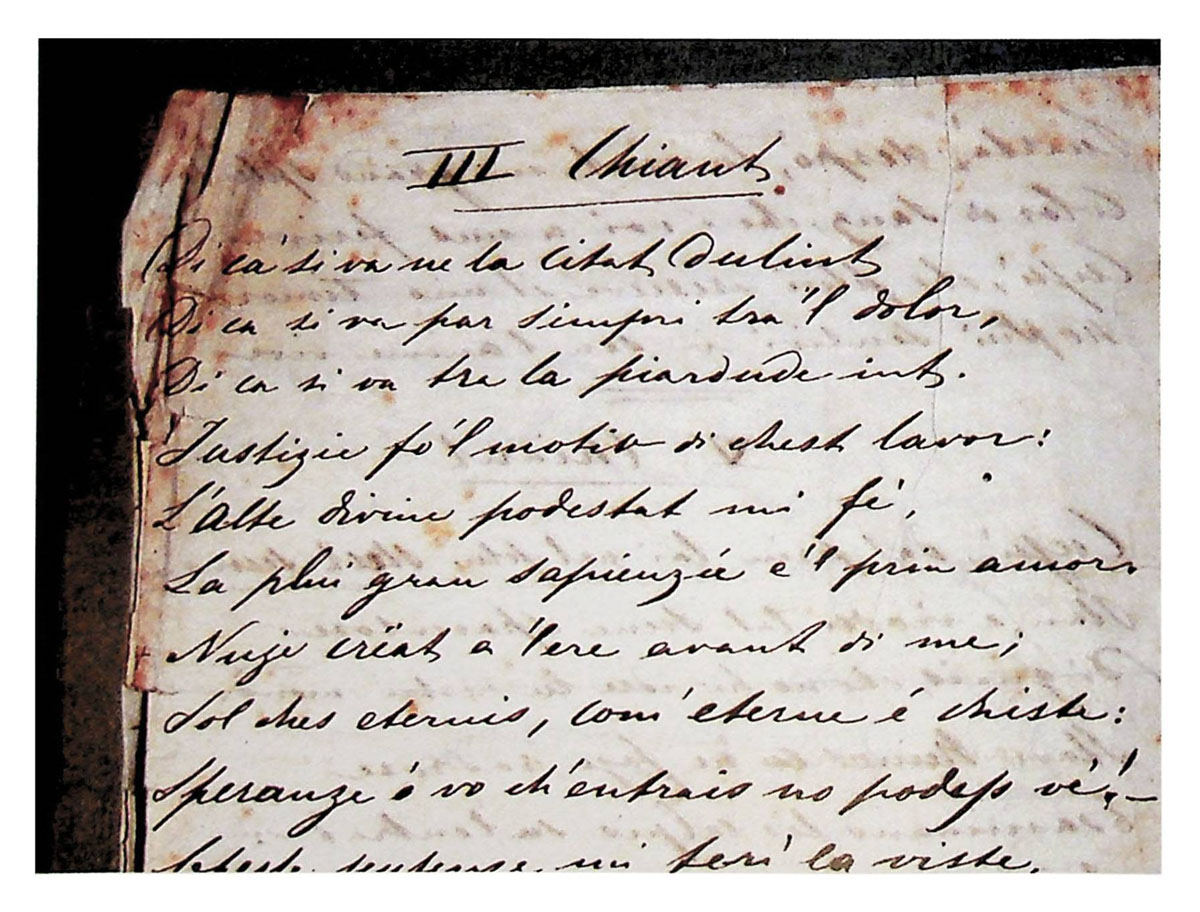 III Chiant.
Di cà si va ne la citat dulint
Di ca si va par simpri tra 'l dolor,
Di ca si va tra la piardude int.
Justizie fo 'l motiv di chest lavor:
L'alte divine podestat mi fè,
La plui gran sapienzie e 'l prin amor.
Nuje crëat a 'l ere avant di me;
Sol ches eternis, com' eterne é chiste:
Speranze ó vo ch'entrais no podess vè!–
sentense mi ferì la viste,